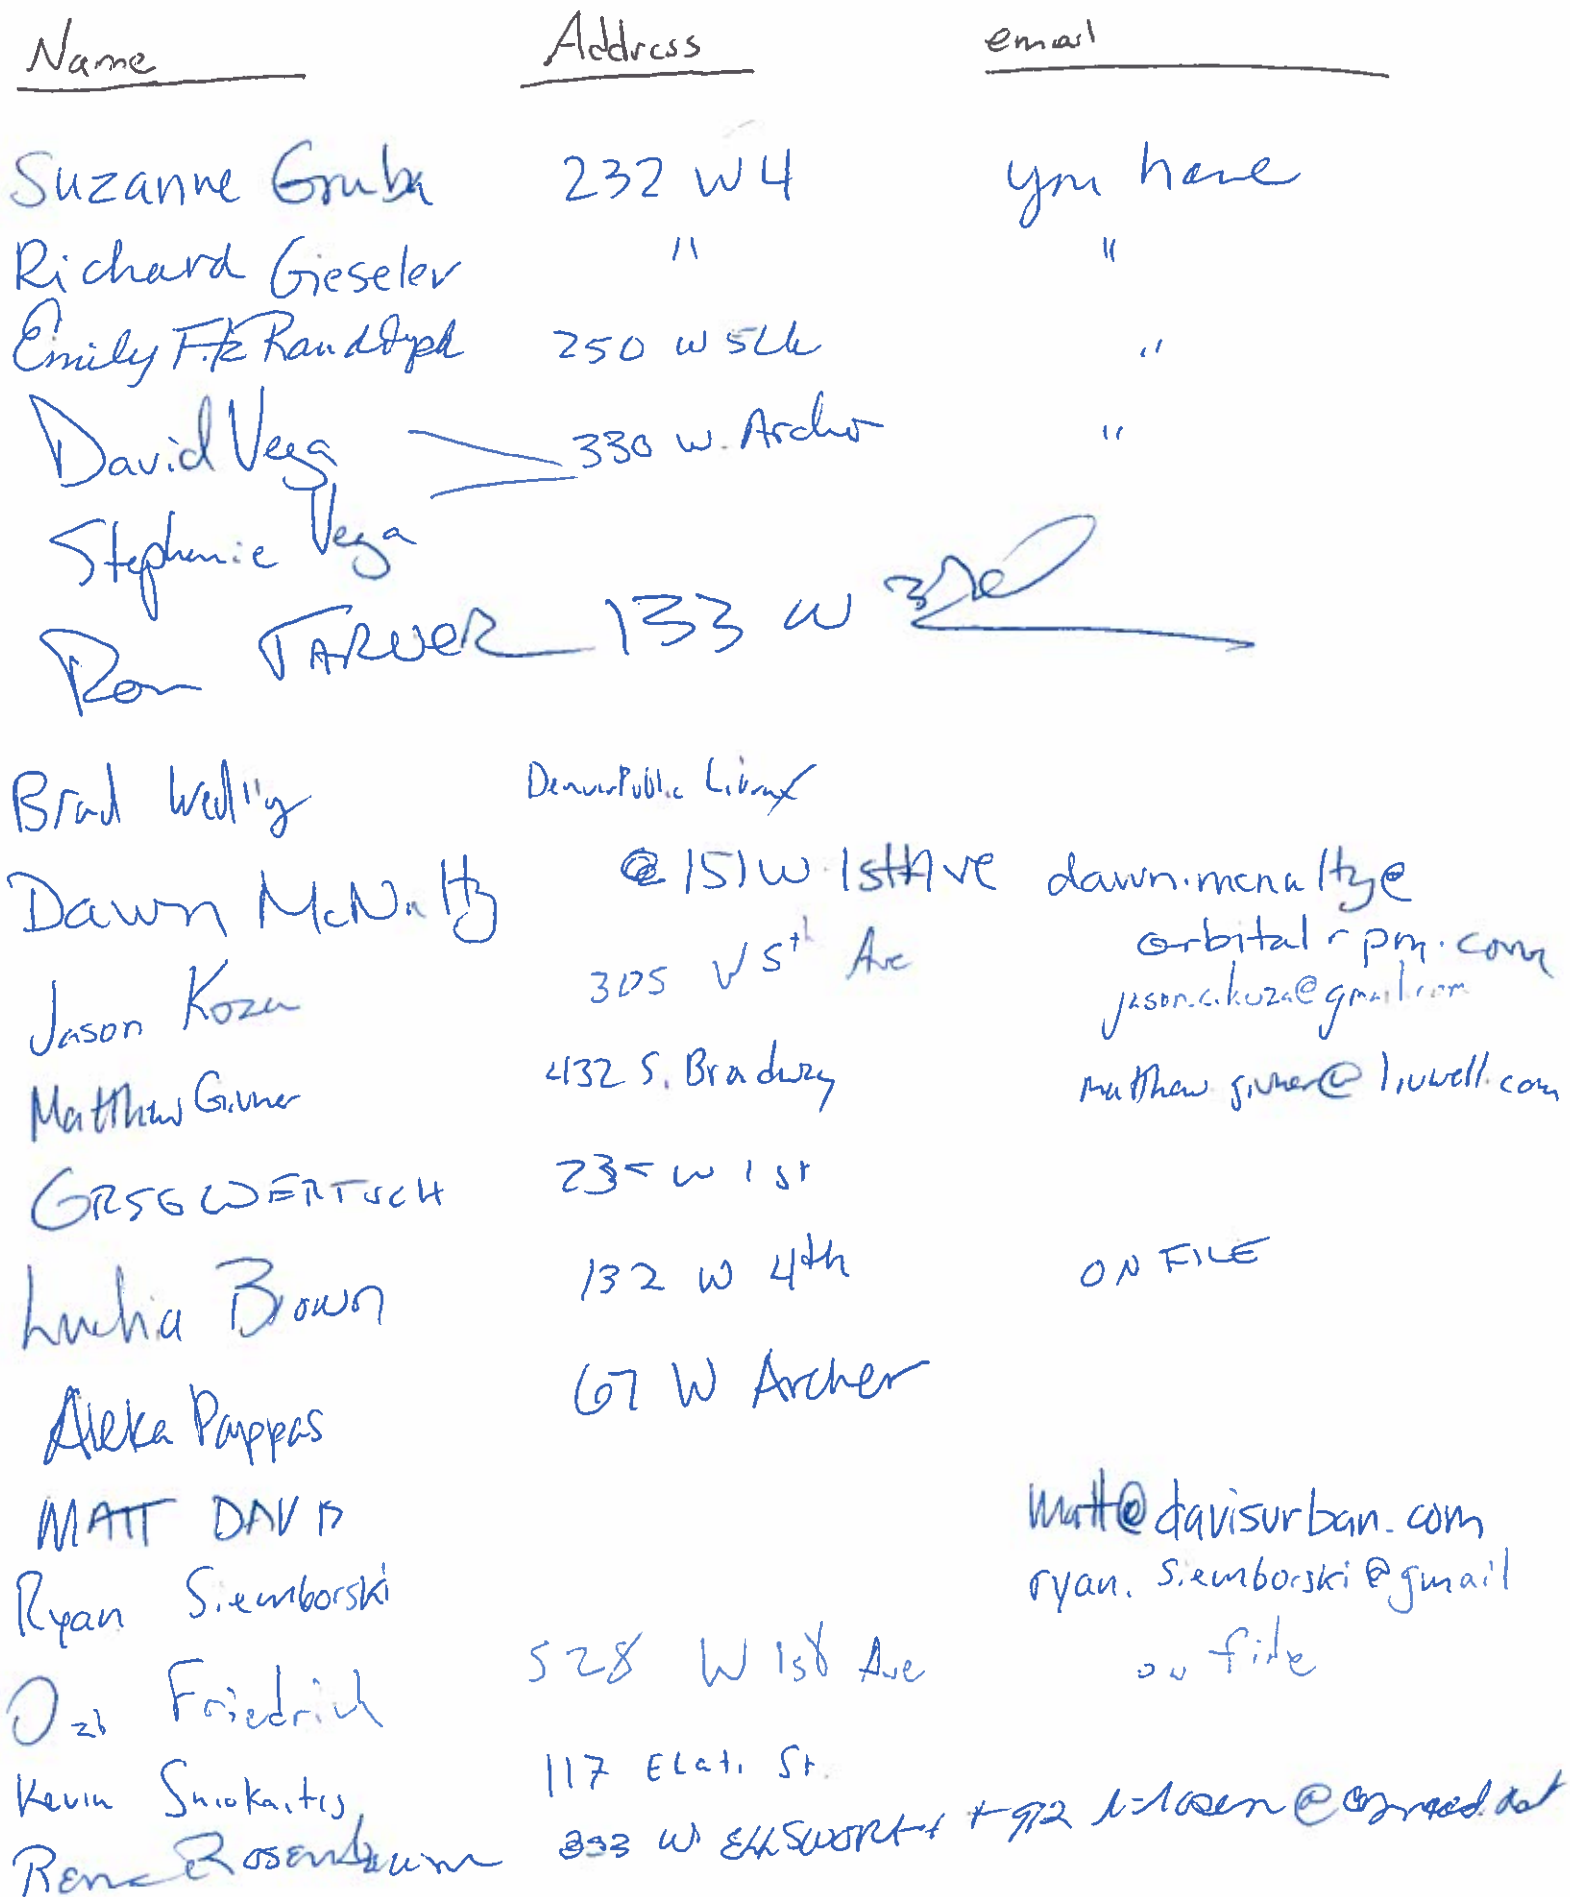 Name Address email
Suzanne Gruba 232 W 4 you have
Richard Gieseler " "
Emily FitzRandolph 250 W 5th "
David Vega 330 W. Archer "
Stephanie Vega
Ron TARVER 133 W 3rd
Brad Denver Public Library
Dawn McNaltz @ 151 W 1st Ave dawn.mcnaltz@
orbital-rpm.com
Jason Koza 305 W 5th Ave jason.c.koza@gmail.com
Matthew Givner 432 S. Broadway matthew.givner@livwell.com
GREG WERTSCH 235 W 1st
Luchia Brown 132 W 4th ON FILE
Aleka Pappas 67 W Archer
MATT DAVIS matt@davisurban.com
Ryan Siemborski ryan.siemborski@gmail
Ozi Friedrich 528 W 1st Ave on file
Kevin Sniokaitis 117 Elati St.
Rosenbaum 333 W ELLSWORTH